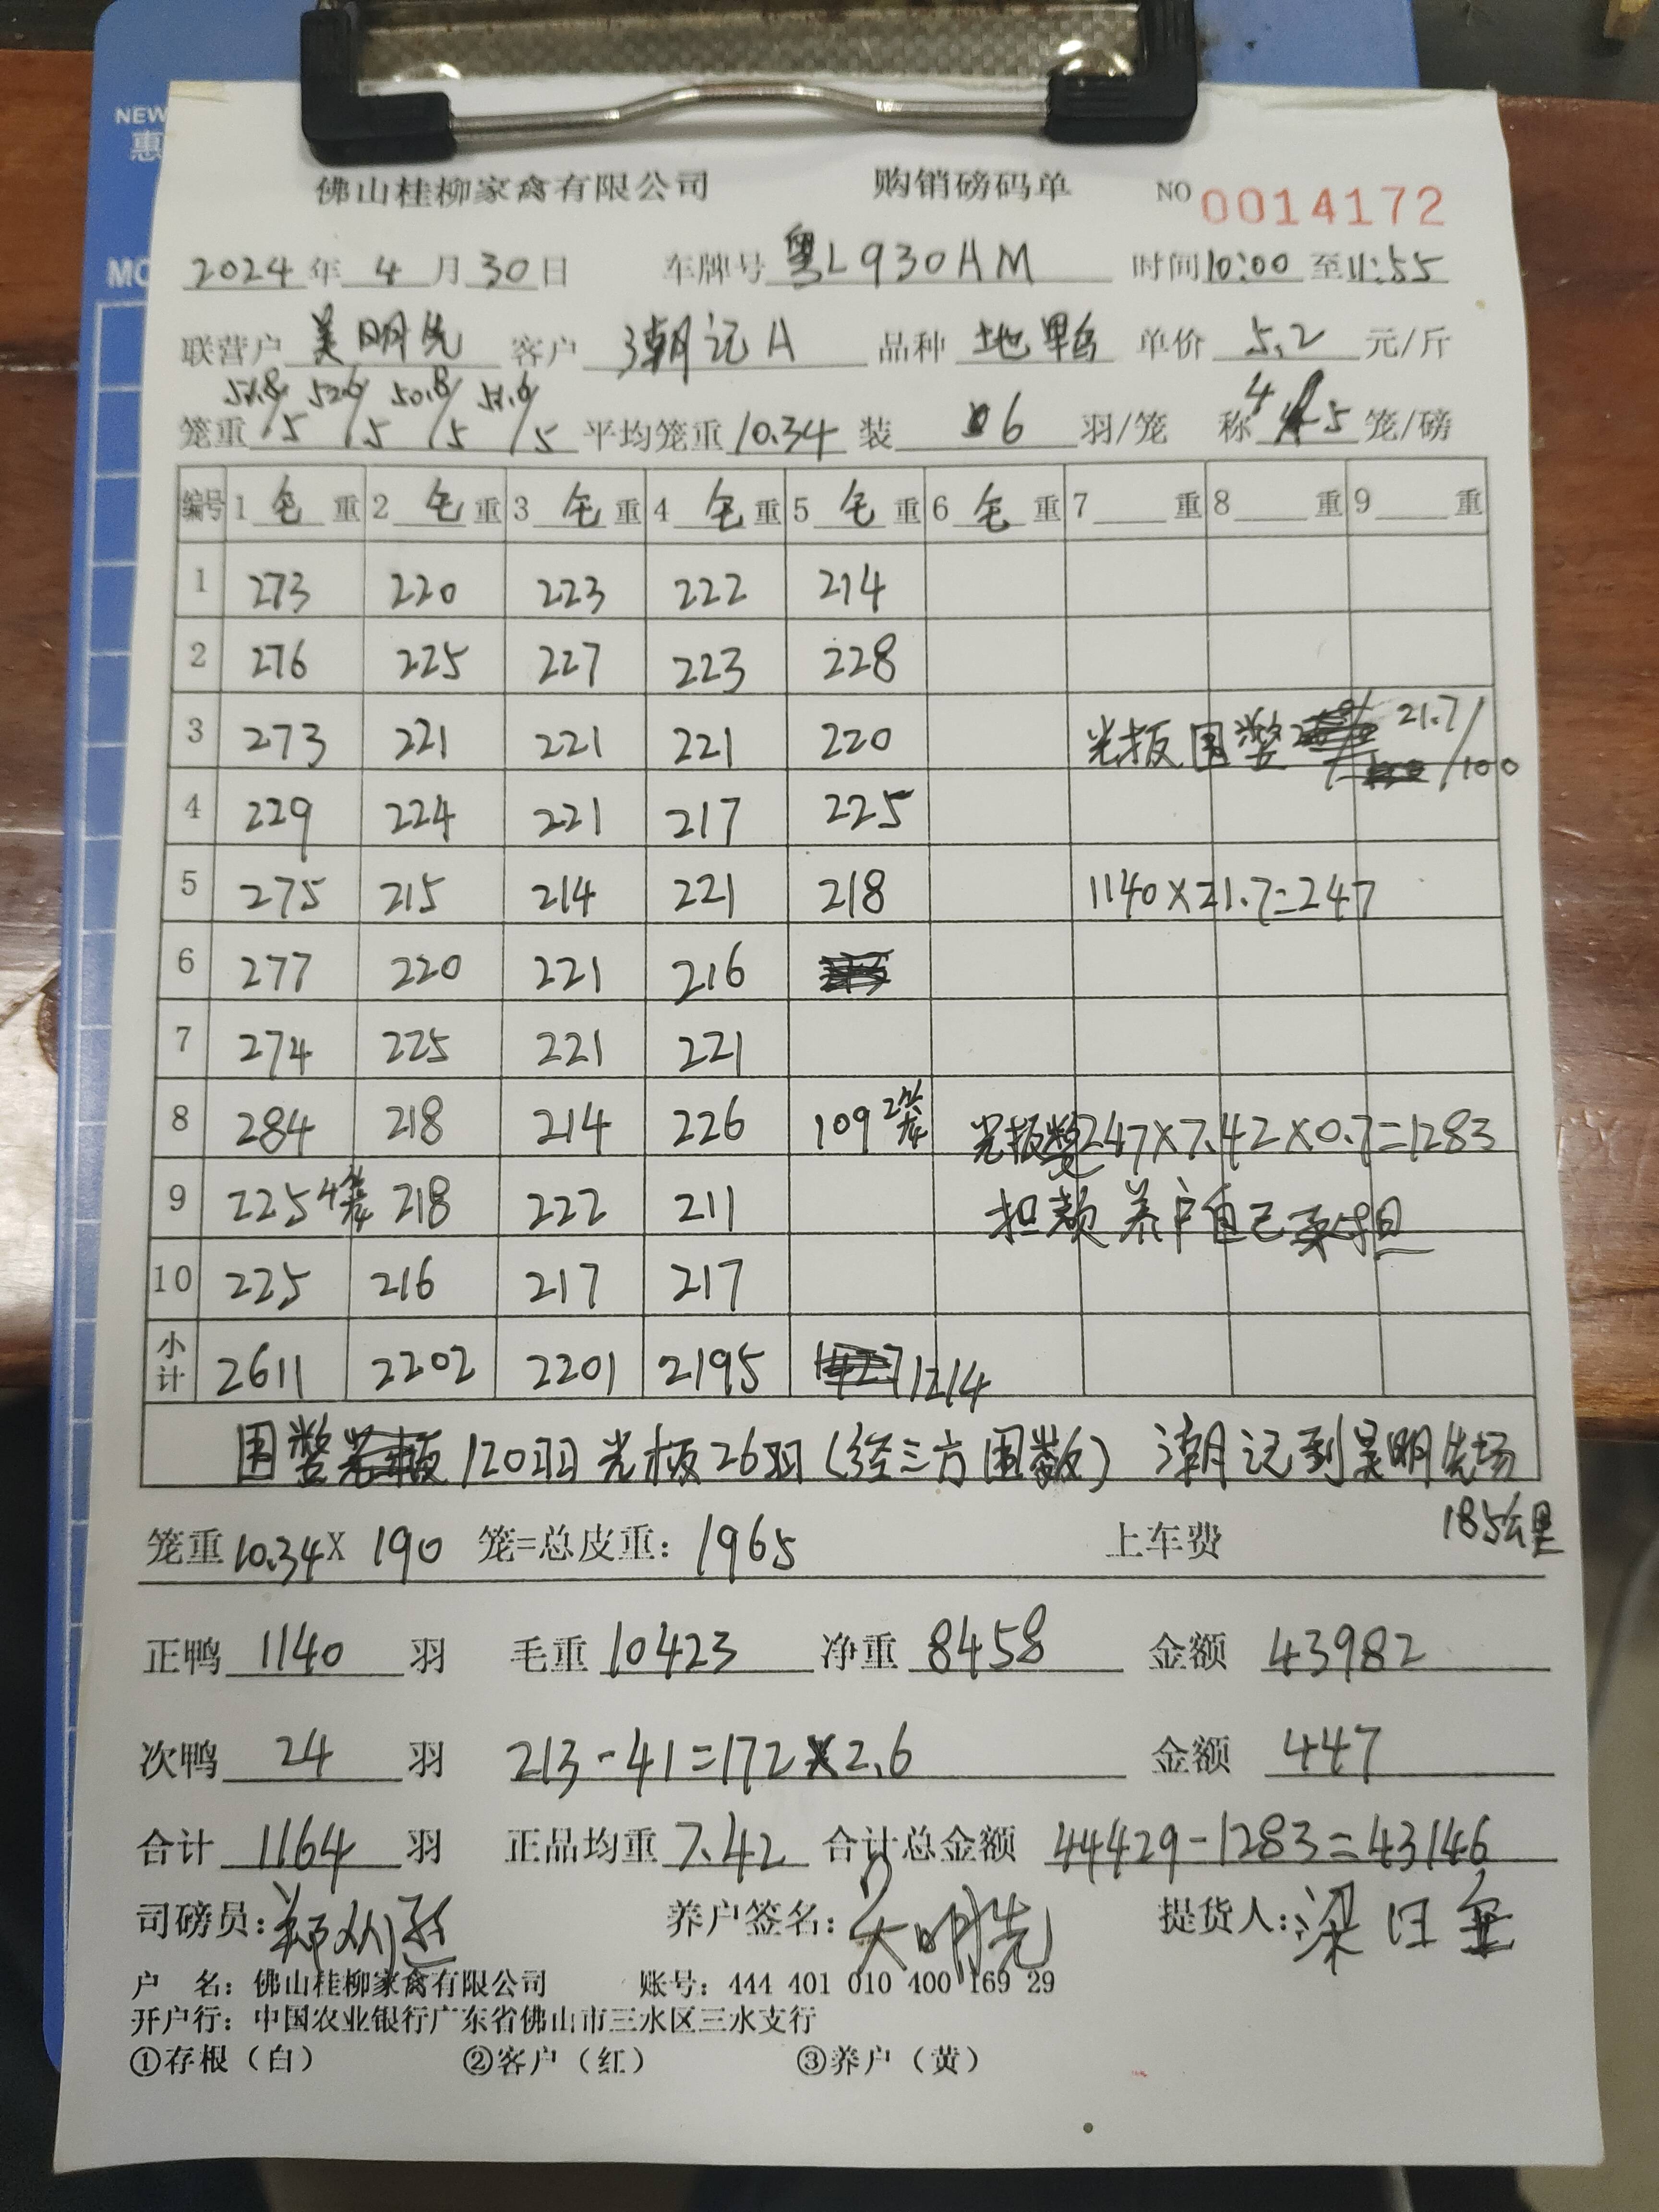 NEW
惠
MO
佛山桂柳家禽有限公司 购销磅码单 NO 0014172
2024年 4月30日 车牌号 粤L930HM 时间10:00 至11:55
联营户 吴明先 客户 潮记A 品种 土鸭 单价 5.2 元/斤
51.8/5 52.6/5 50.8/5 51.6/5
笼重 平均笼重 10.34 装 6 羽/笼 称 4 5 笼/磅
编号 1 毛 重 2 毛 重 3 毛 重 4 毛 重 5 毛 重 6 毛 重 7 重 8 重 9 重
1 273 220 223 222 214
2 276 225 227 223 228
3 273 221 221 221 220 光板围数 21.7/100
4 229 224 221 217 225
5 275 215 214 221 218 1140×21.7=247
6 277 220 221 216
7 274 225 221 221
8 284 218 214 226 109 2笼 光板数247×7.42×0.7=1283
9 225 4笼 218 222 211 担赖养户自己承担
10 225 216 217 217
小计 2611 2202 2201 2195 1214
围数 120羽光板26羽(经三方围数) 潮记到吴明先场
185公里
笼重 10.34× 190 笼=总皮重: 1965 上车费
正鸭 1140 羽 毛重 10423 净重 8458 金额 43982
次鸭 24 羽 213-41=172×2.6 金额 447
合计 1164 羽 正品均重 7.42 合计总金额 44429-1283=43146
司磅员: 养户签名: 吴明先 提货人: 梁旺金
户 名: 佛山桂柳家禽有限公司 账号: 444 401 010 400 169 29
开户行: 中国农业银行广东省佛山市三水区三水支行
①存根(白) ②客户(红) ③养户(黄)